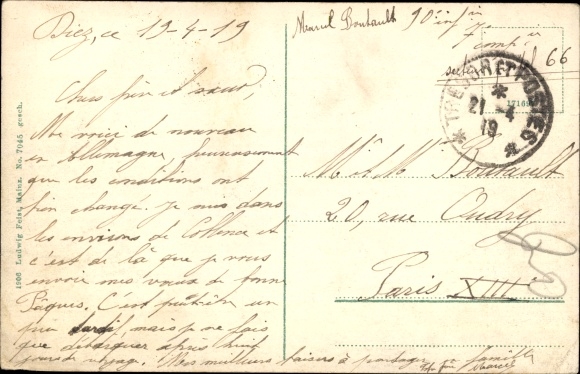 Diez, ce 19-4-19
Chers frère et sœur,
Me voici de nouveau
en Allemagne, heureusement
que les conditions ont
bien changé. Je suis dans
les environs de Coblence et
c'est de là que je vous
envoie mes vœux de bonne
Pâques. C'est peut-être un
peu tardif, mais je ne fais
que débarquer après huit
jours de voyage. Mes meilleurs baisers à partager en famille
Marcel
1906 Ludwig Feist, Mainz. No. 7045 gesch.
Marcel Boutault 90e infie
7e Comp
secteur 66
17169
* TRESOR ET POSTES *
21 - 4
19
Mr & Mme Boutault
20, rue Oudry
Paris XIIIe